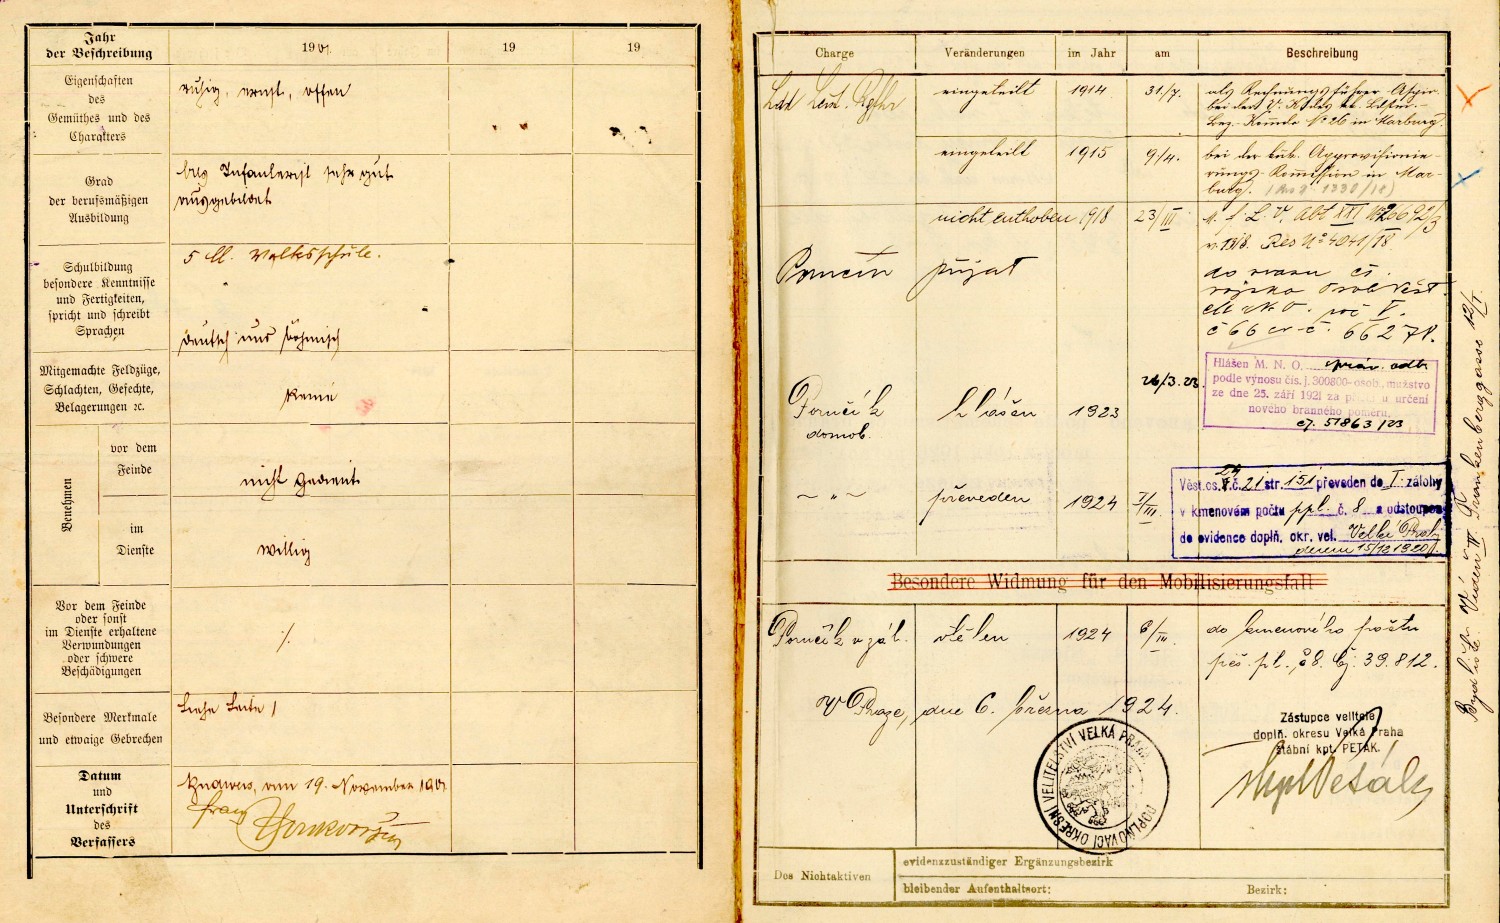 Jahr
der Beschreibung
19
19
19
Eigenschaften
des
Gemüthes und des
Charakters
ruhig, ernst, offen
Grad
der berufsmäßigen
Ausbildung
als Infanterist sehr gut
ausgebildet
Schulbildung
besondere Kenntnisse
und Fertigkeiten,
spricht und schreibt
Sprachen
5 Kl. Volksschule.
deutsch und böhmisch
Mitgemachte Feldzüge,
Schlachten, Gefechte,
Belagerungen ꝛc.
keine
Benehmen
vor dem
Feinde
nicht gedient
im
Dienste
willig
Vor dem Feinde
oder sonst
im Dienste erhaltene
Verwundungen
oder schwere
Beschädigungen
./.
Besondere Merkmale
und etwaige Gebrechen
Siehe Seite 1
Datum
und
Unterschrift
des
Verfassers
am 19. November
Franz
Charge
Veränderungen
im Jahr
am
Beschreibung
eingeteilt 1914 31/7.
als Rechnungsführer-Aspir.
bei dem
Bez. Komdo No 26 in Marburg.
eingeteilt 1915 9/4.
bei der k.u.k. Approvisionie-
rungs-Kommission in Mar-
burg.
nicht enthoben 1918 23/III
M. f. L. V. Abt XXI No 26692/3
v. 1918. Res No 4041/18
přijat
do svazu čs.
vojska Osob. Věst.
M.N.O. roč V.
č 66 66278.
Hlášen M. N. O. správ. odb.
podle výnosu čís. j. 300800-osob., mužstvo
ze dne 25. září 1921 za při určení
nového branného poměru.
čj. 51863/23
Poručík
domob.
hlášen 1923 26/3.23.
– „ –
převeden 1924 1/III.
Věst. os. č. 21 str. 151 převeden do I. zálohy
v kmenovém počtu ppl. č. 8 a odstoupen
do evidence doplň. okr. vel. Velké Prahy
dnem 15/10 1920.
Besondere Widmung für den Mobilisierungsfall
Poručík v zál. vtělen 1924 6/III.
do kmenového počtu
pěš. pl. č 8. čj. 39.812.
V Praze, dne 6. března 1924.
Zástupce velitele
doplň. okresu Velká Praha
štábní kpt. PETÁK.
DOPLŇOVACÍ OKRESNÍ VELITELSTVÍ VELKÁ PRAHA
Des Nichtaktiven
evidenzzuständiger Ergänzungsbezirk
bleibender Aufenthaltsort:
Bezirk:
Bydliště: Vídeň IV Frankenberggasse 12/I.